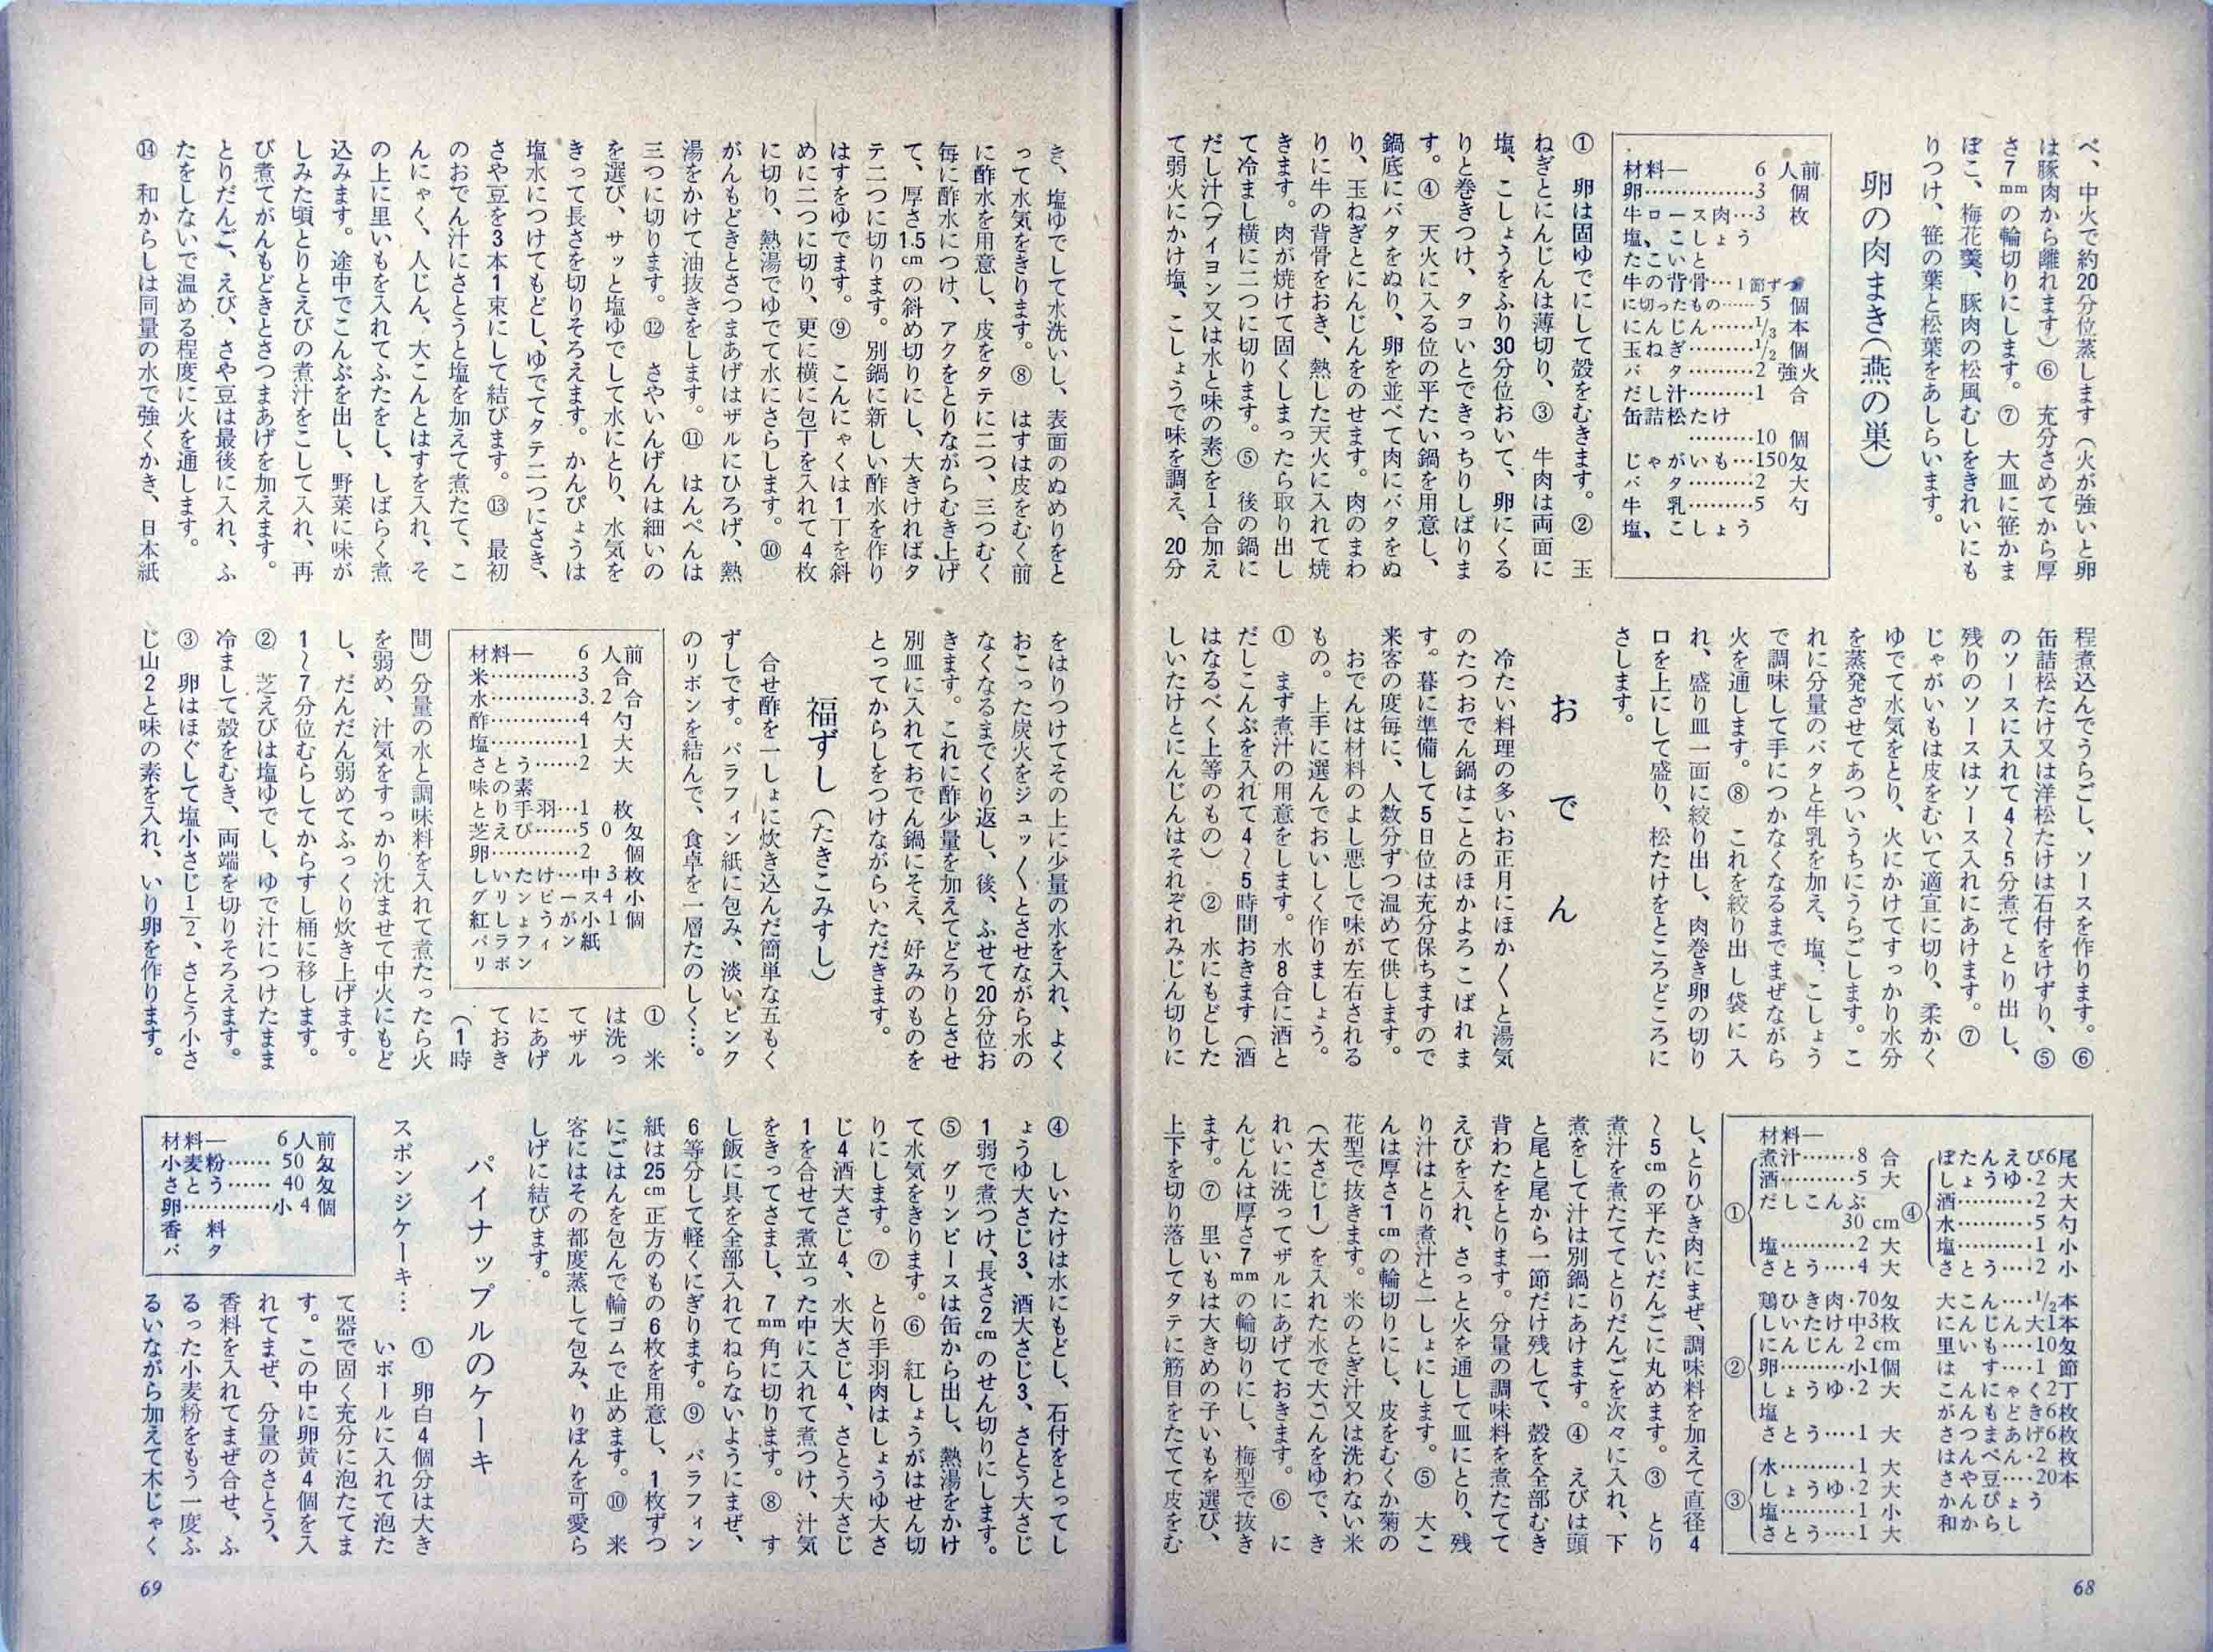 べ、中火で約20分位蒸します（火が強いと卵
は豚肉から離れます）⑥　充分さめてから厚
さ7mmの輪切りにします。⑦　大皿に笹かま
ぼこ、梅花羹、豚肉の松風むしをきれいにも
りつけ、笹の葉と松葉をあしらいます。
卵の肉まき（燕の巣）
材料―　6人前
卵……………3　個
牛ロース肉…3　枚
塩、こしょう
たこいと
牛の背骨…1節ずつ
に切ったもの……5　個
にんじん……1/3　本
玉ねぎ………1/2　個
バタ………2　強火
だし汁………1　合
缶詰松たけ
………10　個
じゃがいも…150匁
バタ………2　大
牛乳………5　勺
塩、こしょう
①　卵は固ゆでにして殻をむきます。②　玉
ねぎとにんじんは薄切り、③　牛肉は両面に
塩、こしょうをふり30分位おいて、卵にくる
りと巻きつけ、タコいとできっちりしばりま
す。④　天火に入る位の平たい鍋を用意し、
鍋底にバタをぬり、卵を並べて肉にバタをぬ
り、玉ねぎとにんじんをのせます。肉のまわ
りに牛の背骨をおき、熱した天火に入れて焼
きます。肉が焼けて固くしまったら取り出し
て冷まし横に二つに切ります。⑤　後の鍋に
だし汁（ブイヨン又は水と味の素）を1合加え
て弱火にかけ塩、こしょうで味を調え、20分
程煮込んでうらごし、ソースを作ります。⑥
缶詰松たけ又は洋松たけは石付をけずり、⑤
のソースに入れて4〜5分煮てとり出し、
残りのソースはソース入れにあけます。⑦
じゃがいもは皮をむいて適宜に切り、柔かく
ゆでて水気をとり、火にかけてすっかり水分
を蒸発させてあついうちにうらごします。こ
れに分量のバタと牛乳を加え、塩、こしょう
で調味して手につかなくなるまでまぜながら
火を通します。⑧　これを絞り出し袋に入
れ、盛り皿一面に絞り出し、肉巻き卵の切り
口を上にして盛り、松たけをところどころに
さします。
おでん
冷たい料理の多いお正月にほか〱と湯気
のたつおでん鍋はことのほかよろこばれま
す。暮に準備して5日位は充分保ちますので
来客の度毎に、人数分ずつ温めて供します。
おでんは材料のよし悪しで味が左右される
もの。上手に選んでおいしく作りましょう。
①　まず煮汁の用意をします。水8合に酒と
だしこんぶを入れて4〜5時間おきます（酒
はなるべく上等のもの）②　水にもどした
しいたけとにんじんはそれぞれみじん切りに
材料―
①
煮汁………8　合
酒…………5　大
だしこんぶ
30 cm
塩…………2　大
さとう……4　大
②
鶏ひき肉・70匁
しいたけ中3枚
にんじん　2 cm
卵………小1個
しょうゆ・2　大
塩
さとう…・1　大
③
水…………1　大
しょうゆ・2　大
塩…………1　小
さとう…・1　大
④
ぼたんえび6尾
しょうゆ・2　大
酒…………2　大
水…………5　勺
塩…………1　小
さとう…・2　小
大こん……1/2本
にんじん大1本
里いも…・10匁
はす……1　節
こんにゃく2丁
がんもどき6枚
さつまあげ6枚
はんぺん・2　枚
さや豆…・20本
かんぴょう
和からし
し、とりひき肉にまぜ、調味料を加えて直径4
〜5cmの平たいだんごに丸めます。③　とり
煮汁を煮たててとりだんごを次々に入れ、下
煮をして汁は別鍋にあけます。④　えびは頭
と尾と尾から一節だけ残して、殻を全部むき
背わたをとります。分量の調味料を煮たてて
えびを入れ、さっと火を通して皿にとり、残
り汁はとり煮汁と一しょにします。⑤　大こ
んは厚さ1cmの輪切りにし、皮をむくか菊の
花型で抜きます。米のとぎ汁又は洗わない米
（大さじ1）を入れた水で大こんをゆで、き
れいに洗ってザルにあげておきます。⑥　に
んじんは厚さ7mmの輪切りにし、梅型で抜き
ます。⑦　里いもは大きめの子いもを選び、
上下を切り落してタテに筋目をたてて皮をむ
68
き、塩ゆでして水洗いし、表面のぬめりをと
って水気をきります。⑧　はすは皮をむく前
に酢水を用意し、皮をタテに二つ、三つむく
毎に酢水につけ、アクをとりながらむき上げ
て、厚さ1.5cmの斜め切りにし、大きければタ
テ二つに切ります。別鍋に新しい酢水を作り
はすをゆでます。⑨　こんにゃくは1丁を斜
めに二つに切り、更に横に包丁を入れて4枚
に切り、熱湯でゆでて水にさらします。⑩
がんもどきとさつまあげはザルにひろげ、熱
湯をかけて油抜きをします。⑪　はんぺんは
三つに切ります。⑫　さやいんげんは細いの
を選び、サッと塩ゆでして水にとり、水気を
きって長さを切りそろえます。かんぴょうは
塩水につけてもどし、ゆでてタテ二つにさき、
さや豆を3本1束にして結びます。⑬　最初
のおでん汁にさとうと塩を加えて煮たて、こ
んにゃく、人じん、大こんとはすを入れ、そ
の上に里いもを入れてふたをし、しばらく煮
込みます。途中でこんぶを出し、野菜に味が
しみた頃とりとえびの煮汁をこして入れ、再
び煮てがんもどきとさつまあげを加えます。
とりだんご、えび、さや豆は最後に入れ、ふ
たをしないで温める程度に火を通します。
⑭　和からしは同量の水で強くかき、日本紙
をはりつけてその上に少量の水を入れ、よく
おこった炭火をジュッ〱とさせながら水の
なくなるまでくり返し、後、ふせて20分位お
きます。これに酢少量を加えてどろりとさせ
別皿に入れておでん鍋にそえ、好みのものを
とってからしをつけながらいただきます。
福ずし（たきこみすし）
合せ酢を一しょに炊き込んだ簡単な五もく
ずしです。パラフィン紙に包み、淡いピンク
のリボンを結んで、食卓を一層たのしく…。
材料―　6人前
米…………3　合
水…………3.2合
酢…………4　勺
塩…………1　大
さとう……2　大
味の素
とり手羽…1　枚
芝えび……50匁
卵…………2　個
しいたけ…中3枚
グリンピース4小
紅しょうが小1個
パラフィン紙
リボン
①　米
は洗っ
てザル
にあげ
ておき
（1時
間）分量の水と調味料を入れて煮たったら火
を弱め、汁気をすっかり沈ませて中火にもど
し、だんだん弱めてふっくり炊き上げます。
1〜7分位むらしてからすし桶に移します。
②　芝えびは塩ゆでし、ゆで汁につけたまま
冷まして殻をむき、両端を切りそろえます。
③　卵はほぐして塩小さじ1/2、さとう小さ
じ山2と味の素を入れ、いり卵を作ります。
④　しいたけは水にもどし、石付をとってし
ょうゆ大さじ3、酒大さじ3、さとう大さじ
1弱で煮つけ、長さ2cmのせん切りにします。
⑤　グリンピースは缶から出し、熱湯をかけ
て水気をきります。⑥　紅しょうがはせん切
りにします。⑦　とり手羽肉はしょうゆ大さ
じ4酒大さじ4、水大さじ4、さとう大さじ
1を合せて煮立った中に入れて煮つけ、汁気
をきってさまし、7mm角に切ります。⑧　す
し飯に具を全部入れてねらないようにまぜ、
6等分して軽くにぎります。⑨　パラフィン
紙は25cm正方のもの6枚を用意し、1枚ずつ
にごはんを包んで輪ゴムで止めます。⑩　来
客にはその都度蒸して包み、りぼんを可愛ら
しげに結びます。
パイナップルのケーキ
スポンジケーキ…
材料―　6人前
小麦粉……50匁
さとう……40匁
卵…………小4個
香料
バタ
①　卵白4個分は大き
いボールに入れて泡た
て器で固く充分に泡たてま
す。この中に卵黄4個を入
れてまぜ、分量のさとう、
香料を入れてまぜ合せ、ふ
るった小麦粉をもう一度ふ
るいながら加えて木じゃく
69